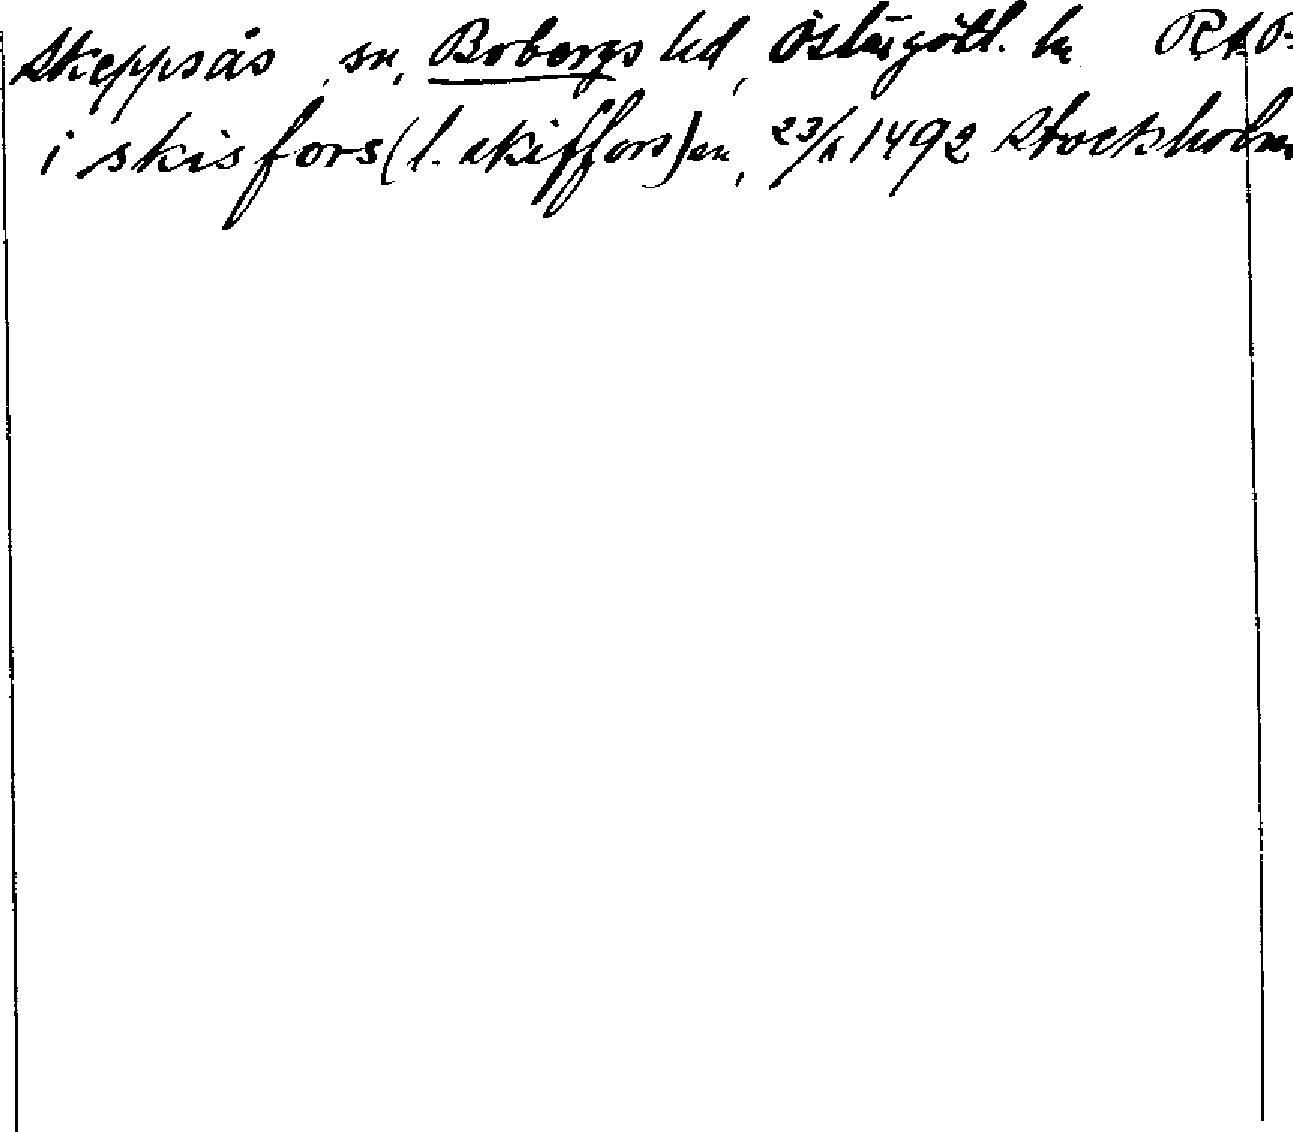 Skeppsås sn, Bobergs hd, Östergötl. ln RAP
i skisfors (l. skiffors) sn, 23/1 1492 Stockholm